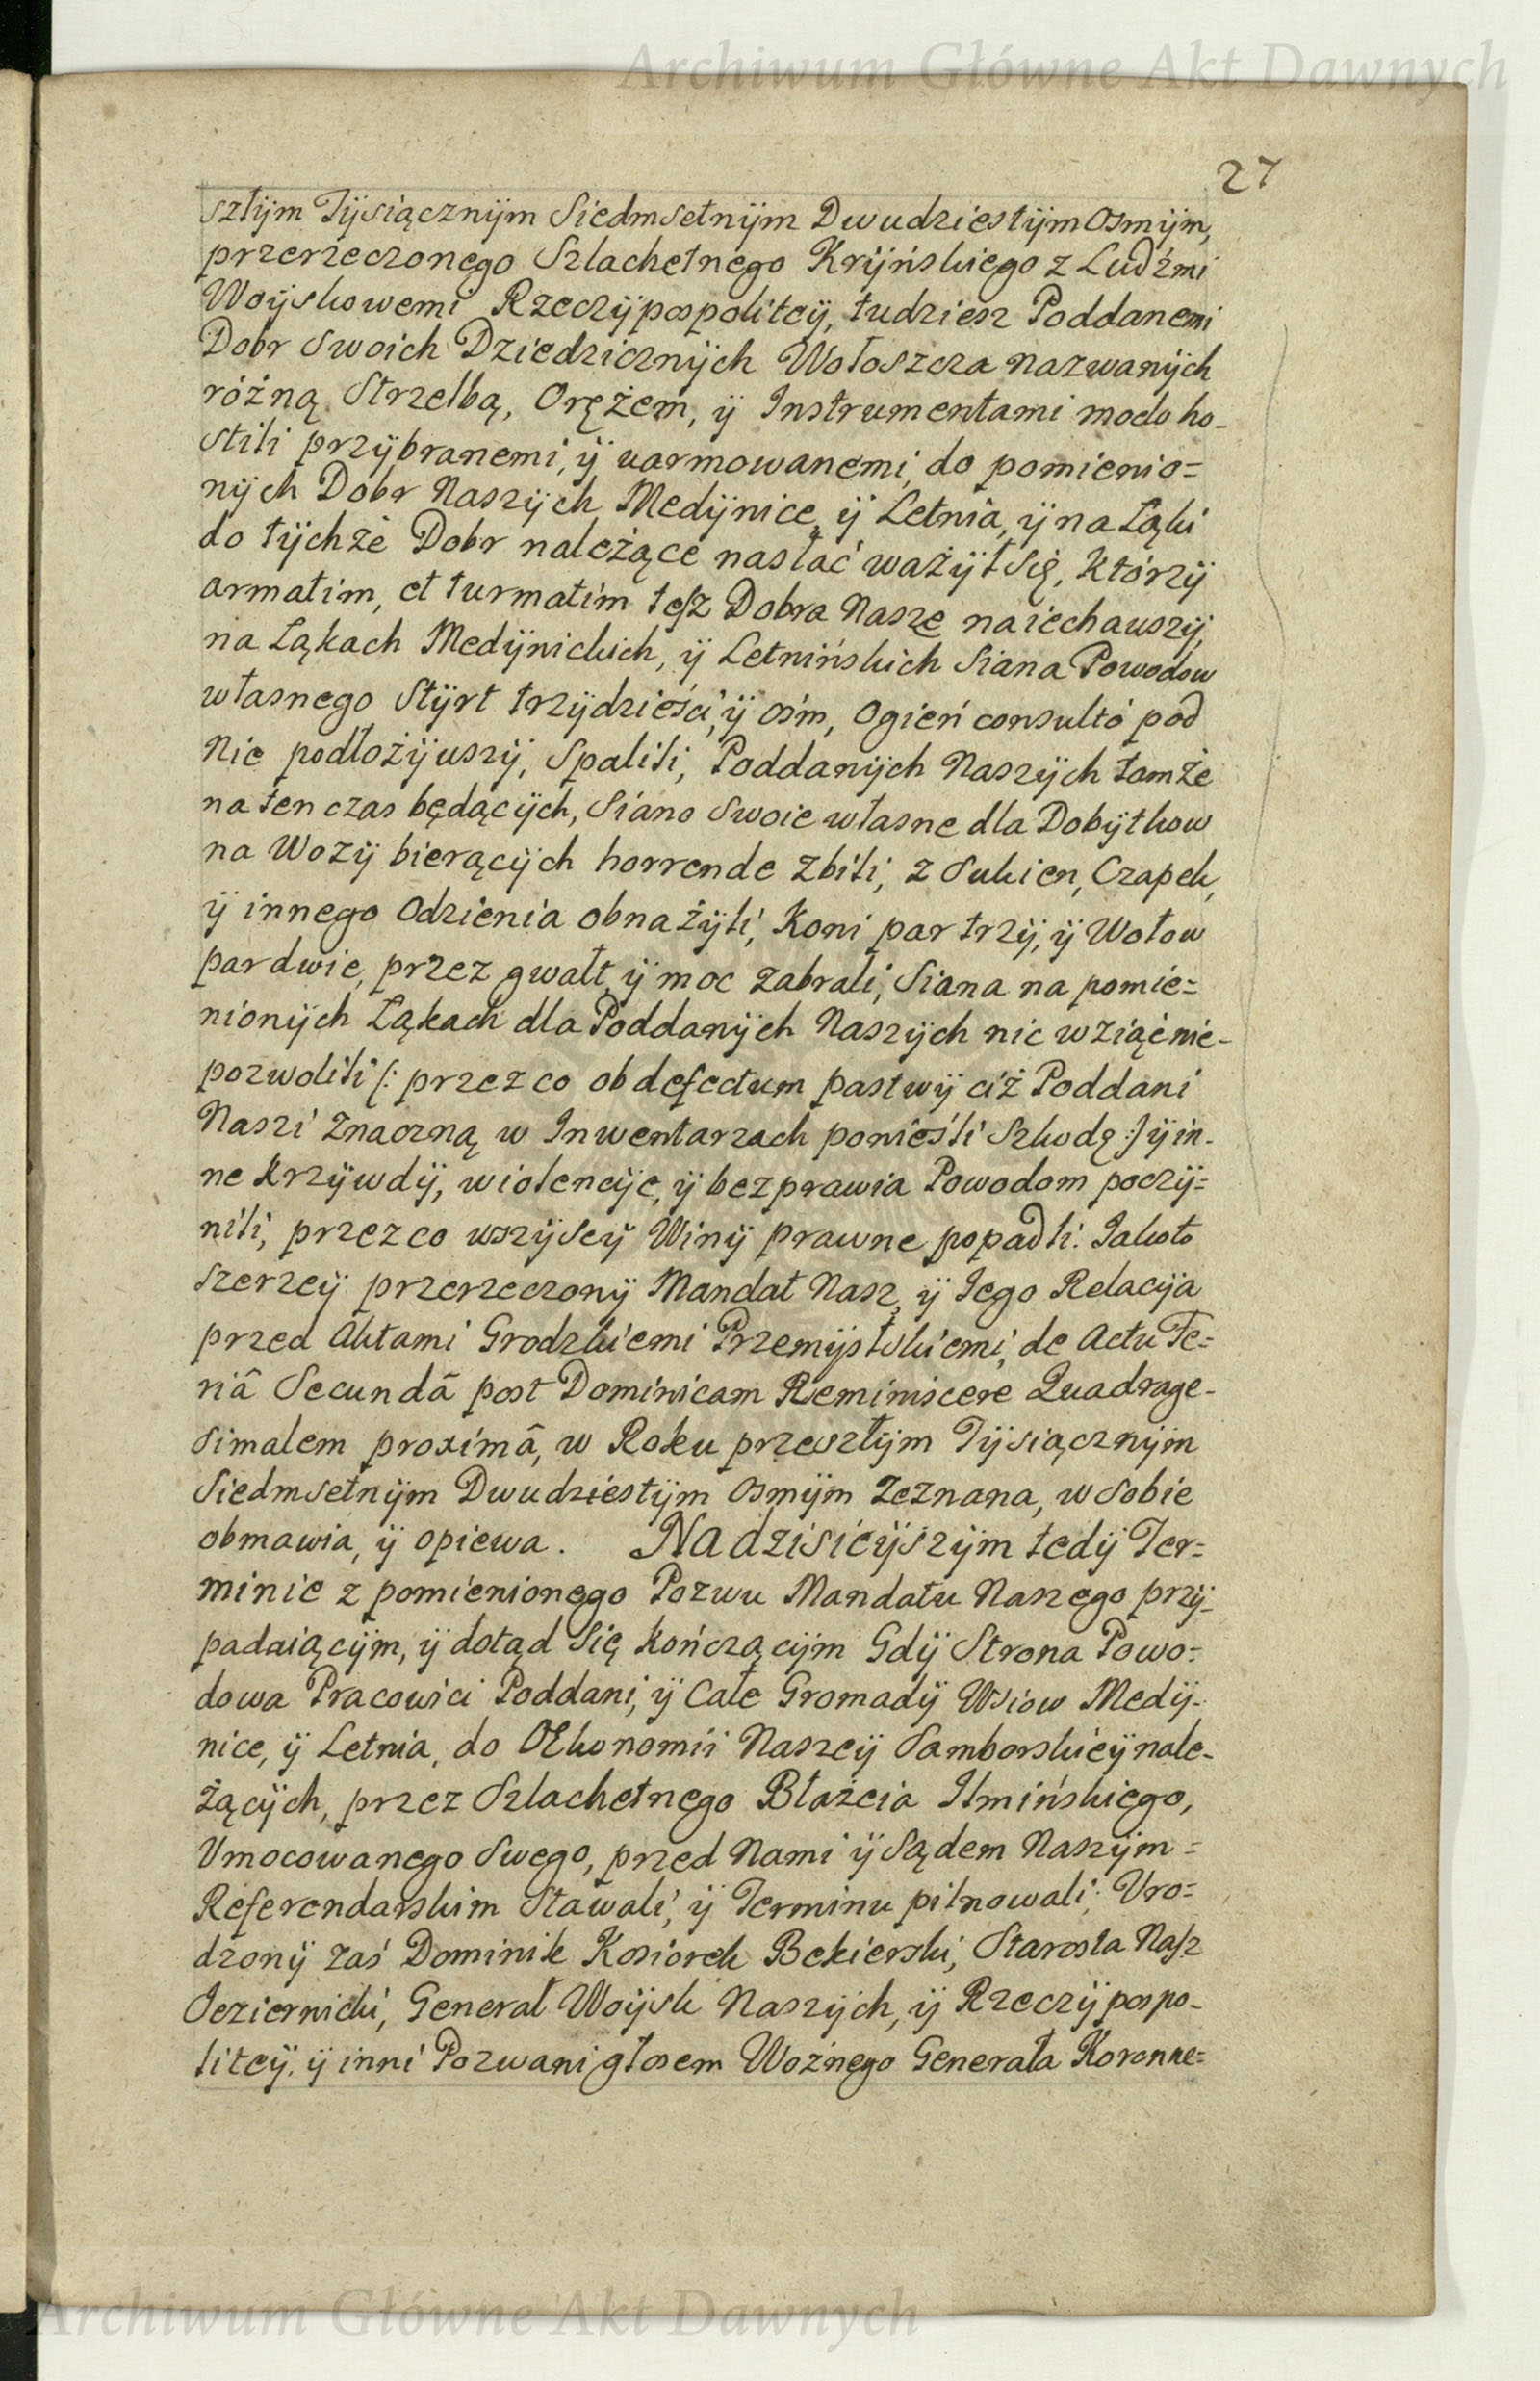 Archiwum Główne Akt Dawnych
27
szłÿm Tÿsiącznÿm Siedmsetnÿm Dwudziestÿm Osmÿm,
przerzeczonego Szlachetnego Krÿńskiego z Ludźmi
Woÿskowemi Rzeczÿpospolitey, tudziesz Poddanemi
Dobr Swoich Dziedzicznÿch Wołoszcza nazwanÿch
różną Strzelbą, Orężem, ÿ Instrumentami modo ho-
stili przÿbranemi, ÿ uarmowanemi, do pomienio=
nÿch Dobr Naszÿch Medÿnice, ÿ Letnia, ÿ na Łąki
do tÿchże Dobr należące nasłać ważÿł Się, którzÿ
armatim, et turmatim tesz Dobra Nasze naiechawszÿ,
na Łąkach Medÿnickich, ÿ Letnińskich Siana Powodow
własnego Stÿrt trzÿdzieści, ÿ ośm, Ogień consultó pod
Nie podłożÿwszÿ, Spalili, Poddanÿch Naszÿch tamże
na ten czas będącÿch, Siano Swoie własne dla Dobÿtkow
na Wozÿ bierącÿch horrende zbili, z Sukien, Czapek,
ÿ innego Odzienia obnażÿli, Koni par trzÿ, ÿ Wołow
par dwie, przez gwałt, ÿ moc zabrali, Siana na pomie=
nionÿch Łąkach dla Poddanÿch Naszÿch nic wziąć nie-
pozwolili /: przez co ob defectum pastwÿ ciż Poddani
Naszi znaczną w Inwentarzach ponieśli Szkodę :/ ÿ in-
ne krzÿwdÿ, wiolencÿe, ÿ bezprawia Powodom poczÿ=
nili, przez co wszÿscÿ Winÿ prawne popadli. Jakoto
Szerzeÿ przerzeczonÿ Mandat Nasz, ÿ Jego Relacÿa
przed Aktami Grodzkiemi Przemÿślskiemi, de Actu Fe=
riâ Secundâ post Dominicam Reminiscere Quadrage-
simalem proximâ, w Roku przeszłÿm Tÿsiącznÿm
Siedmsetnÿm Dwudziestÿm Osmÿm zeznana, w Sobie
obmawia, ÿ opiewa. Na dzisieÿszÿm tedÿ Ter=
minie z pomienionego Pozwu Mandatu Naszego przÿ-
padaiącÿm, ÿ dotąd Się kończącÿm Gdÿ Strona Powo=
dowa Pracowici Poddani, ÿ Całe Gromadÿ Wsiow Medÿ-
nice, ÿ Letnia, do OEkonomii Naszeÿ Samborskieÿ nale-
żącÿch, przez Szlachetnego Błażeia Ilmińskiego,
Umocowanego Swego, przed Nami ÿ Sądem Naszÿm =
Referendarskim Stawali, ÿ Terminu pilnowali; Uro=
dzonÿ zaś Dominik Kosiorek Bekierski, Starosta Nasz
Jeziernicki, Generał Woÿsk Naszÿch, ÿ Rzeczÿpospo-
liteÿ. ÿ inni Pozwani głosem Woźnego Generała Koronne=
Archiwum Główne Akt Dawnych